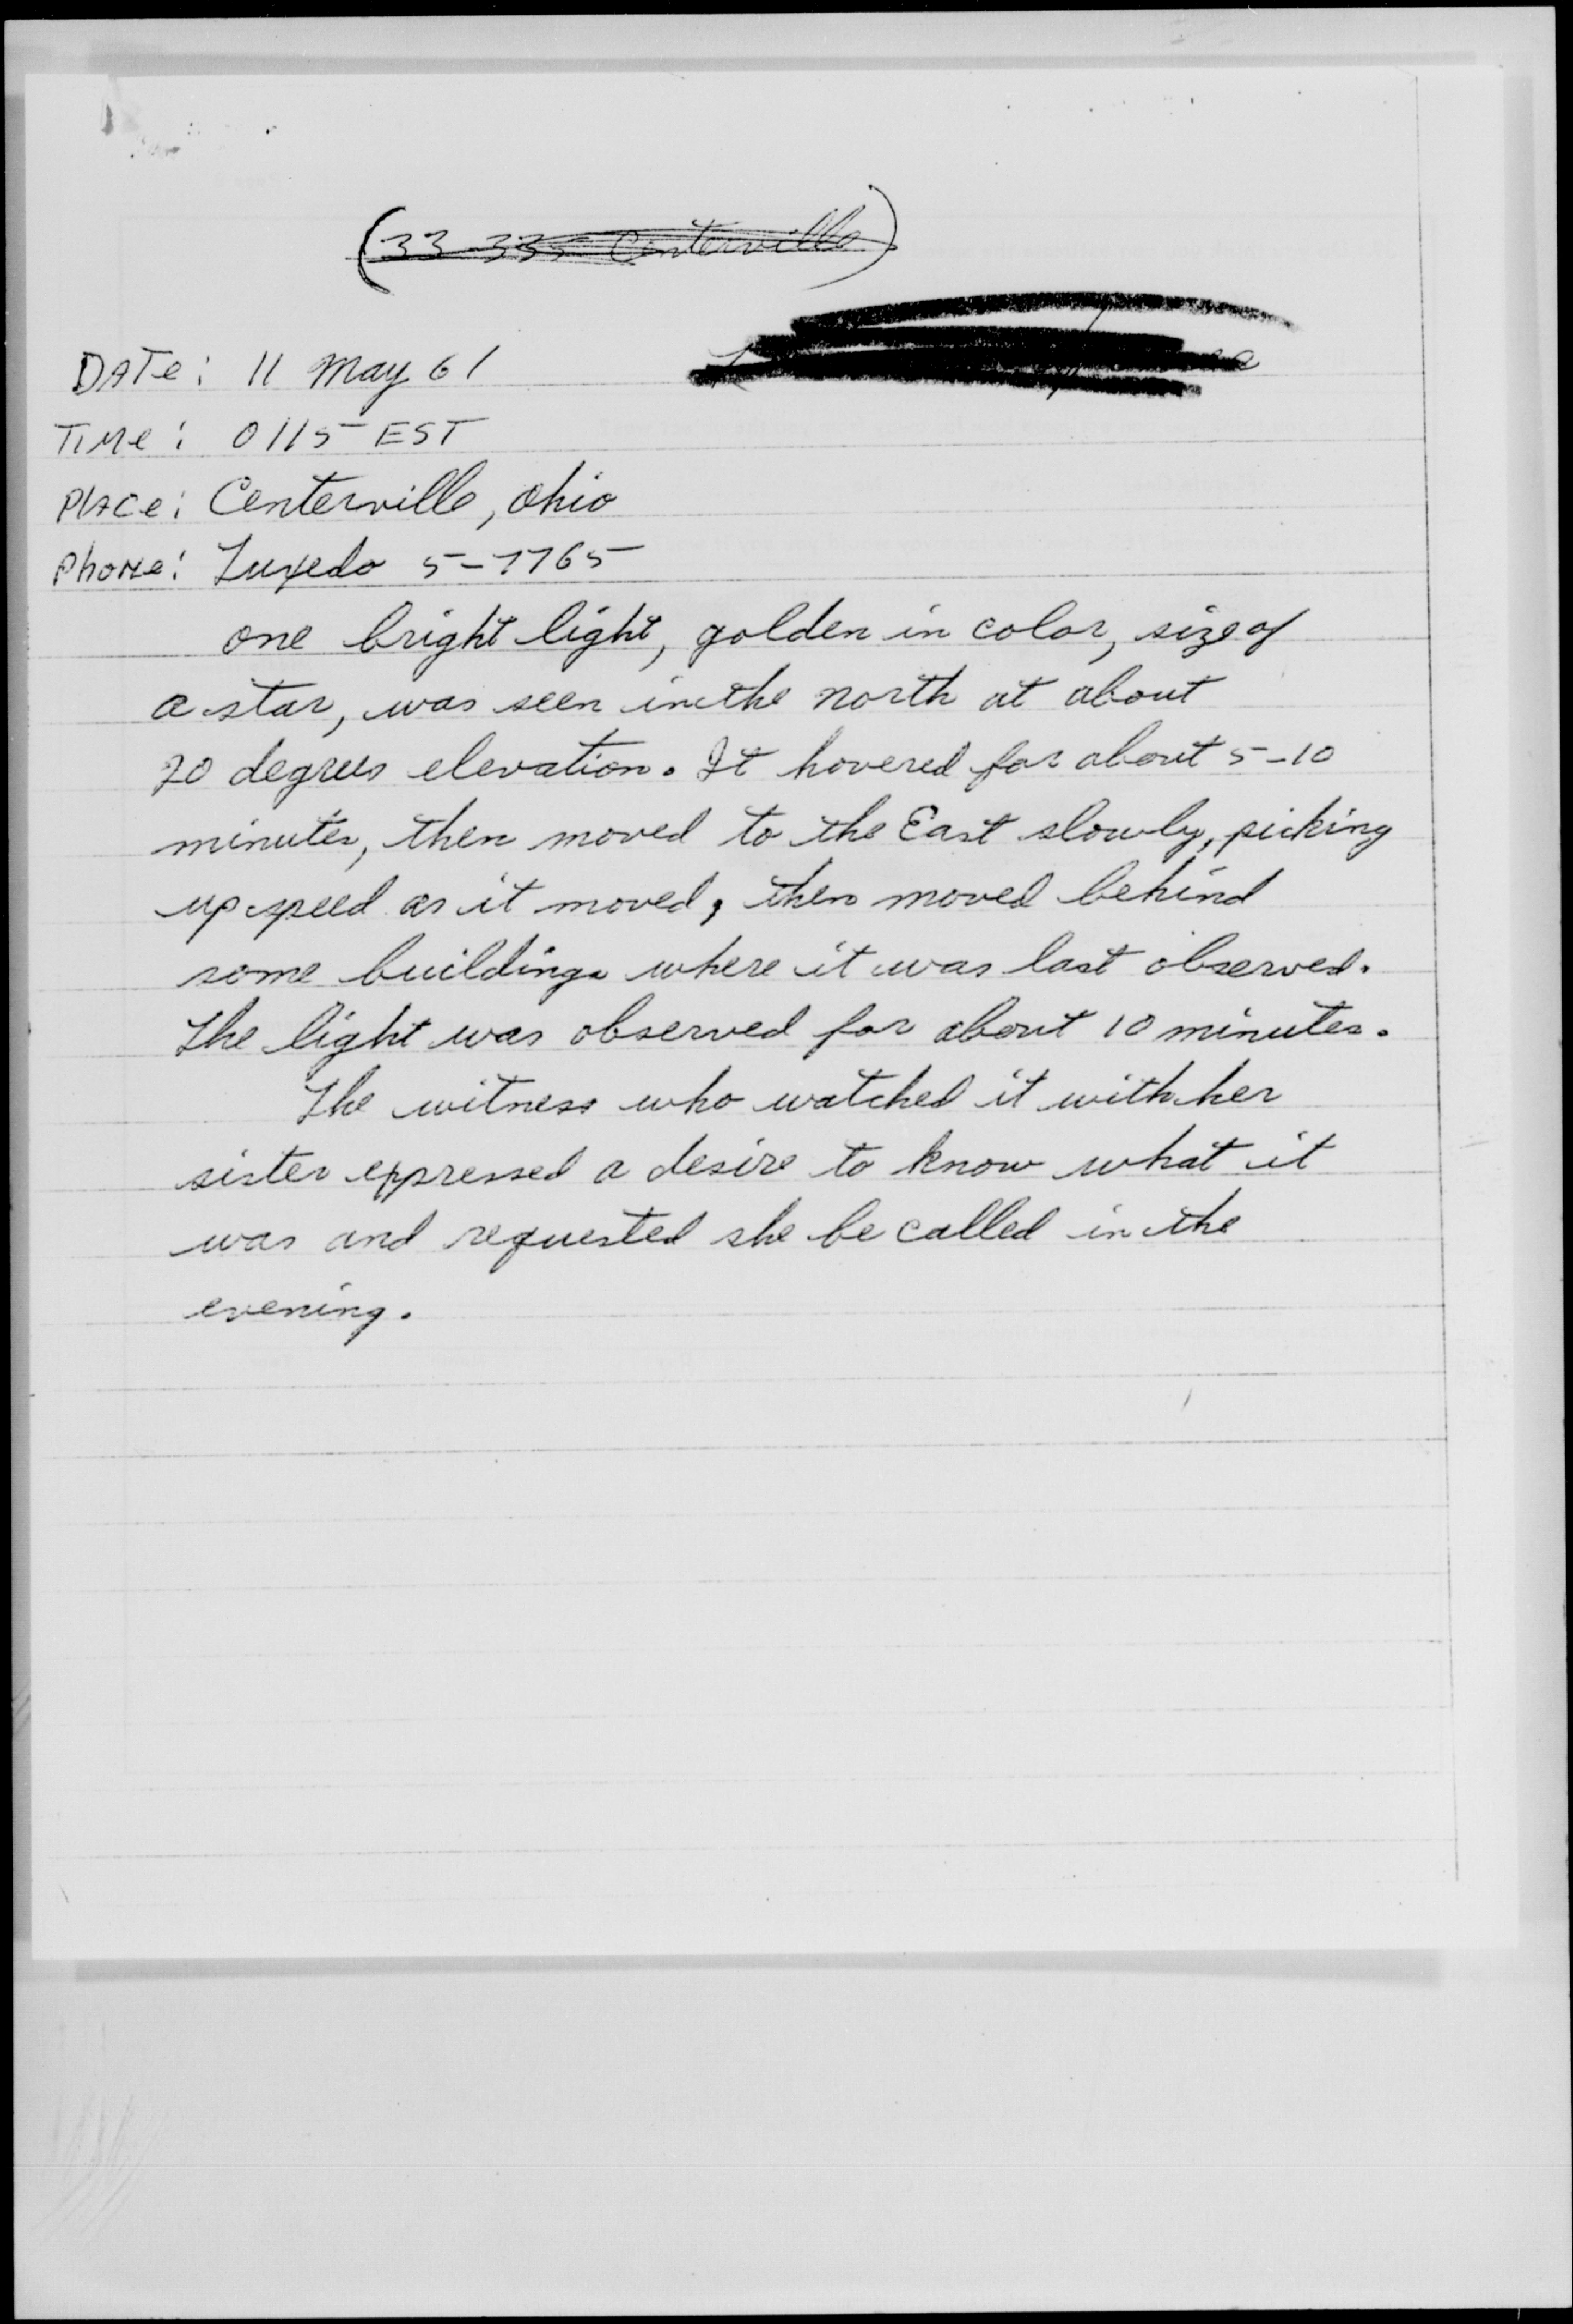 (33-335 Centerville)
DATe: 11 May 61
TIMe: 0115 EST
PlACe: Centerville, Ohio
Phone: Tuxedo 5-7765
one bright light, golden in color, size of
a star, was seen in the north at about
70 degrees elevation. It hovered for about 5-10
minutes, then moved to the East slowly, picking
up speed as it moved, then moved behind
some buildings where it was last observed.
The light was observed for about 10 minutes.
The witness who watched it with her
sister expressed a desire to know what it
was and requested she be called in the
evening.